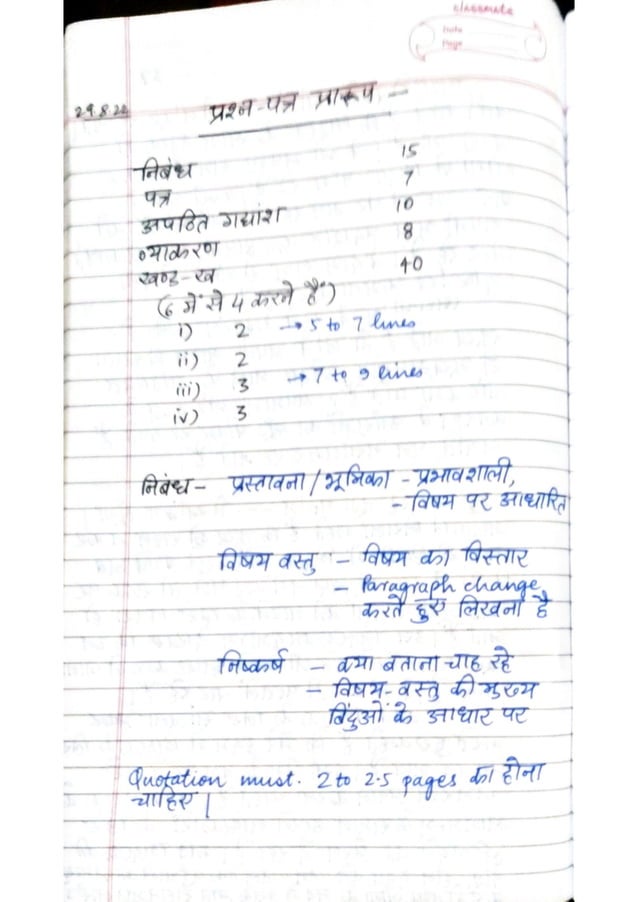 classmate
Date
Page
29.8.22
प्रश्न-पत्र प्रारूप -
निबंध 15
पत्र 7
अपठित गद्यांश 10
व्याकरण 8
खण्ड-ख 40
(6 में से 4 करने हैं)
i) 2 → 5 to 7 lines
ii) 2
iii) 3 → 7 to 9 lines
iv) 3
निबंध - प्रस्तावना / भूमिका - प्रभावशाली,
- विषय पर आधारित
विषय वस्तु - विषय का विस्तार
- Paragraph change
करते हुए लिखना है
निष्कर्ष - क्या बताना चाह रहे
- विषय-वस्तु की मुख्य
बिंदुओं के आधार पर
Quotation must. 2 to 2.5 pages का होना
चाहिए।